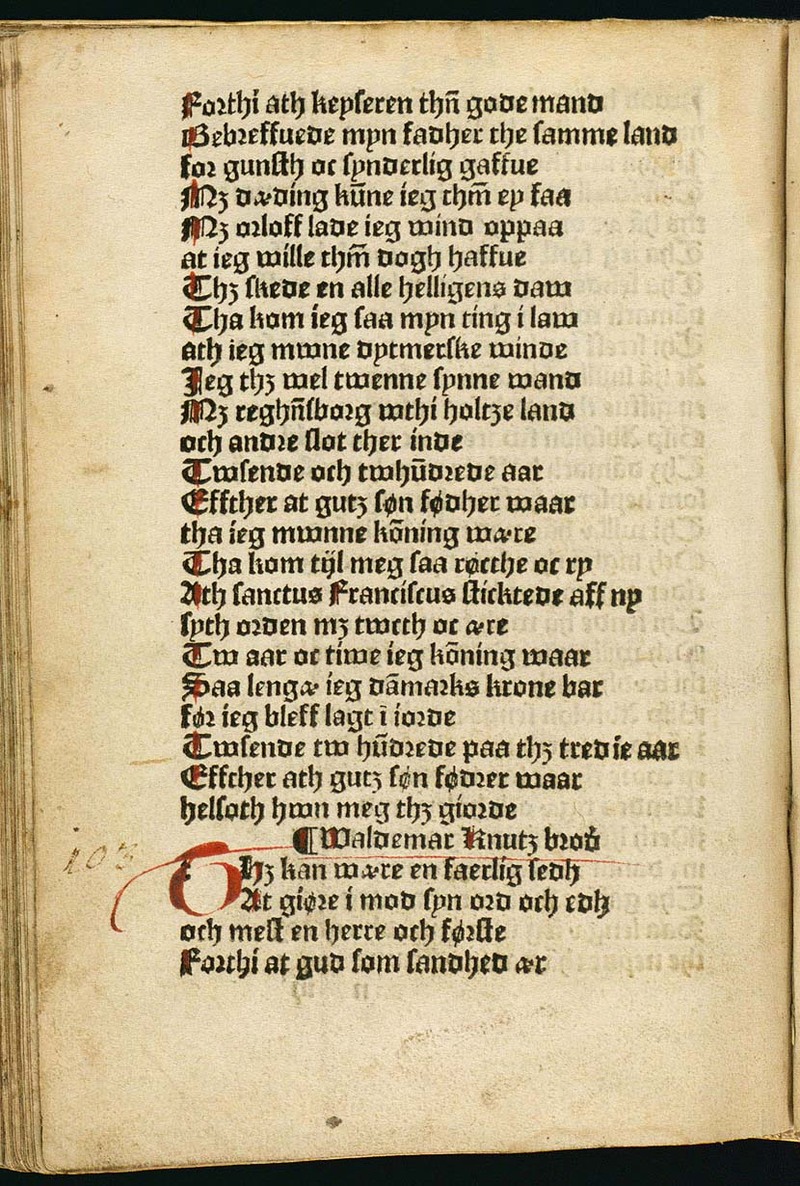 Forthi ath keyseren thn̄ gode mand
Gebreffuede myn fadher the samme land
for gunsth oc synderlig gaffue
Mꝫ dæding kūne ieg thm̄ ey faa
Mꝫ orloff lade ieg wind oppaa
at ieg wille thm̄ dogh haffue
Thꝫ skede en alle helligens daw
Tha kom ieg saa myn ting i law
ath ieg mwne dytmerske winde
Jeg thꝫ wel twenne synne wand
Mꝫ reghn̄sborg wthi holtze land
och andre slot ther inde
Twsende och twhūdrede aar
Effther at gutz søn fødher waar
tha ieg mwnne kōning wære
Tha kom tijl meg saa røcthe oc ry
Ath sanctus Franciscus sticktede aff ny
syth orden mꝫ twcth oc ære
Tw aar oc tiwe ieg kōning waar
Saa lengæ ieg dāmarks krone bar
før ieg bleff lagt ī iorde
Twsende tw hūdrede paa thꝫ tredie aar
Effther ath gutz søn fødrer waar
helsoth hwn meg thꝫ giorde
¶Waldemar Knutz brod̄
103
Thꝫ kan wære en faerlig sedh
At giøre i mod syn ord och edh
och mest en herre och første
Forthi at gud som sandhed ær